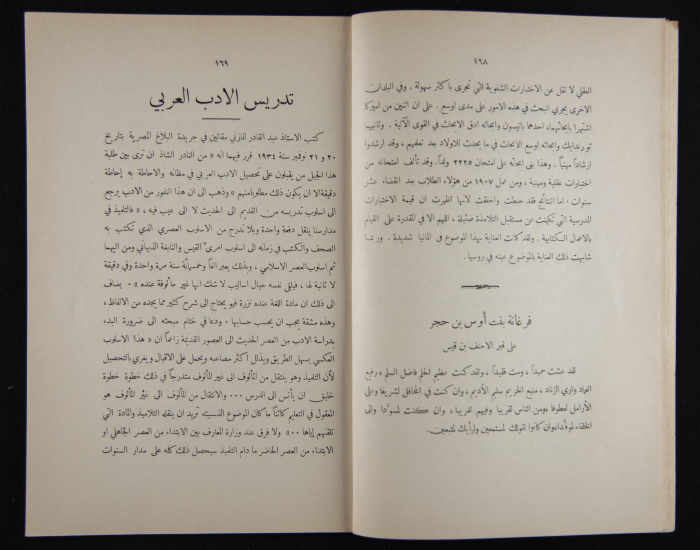 ١٦٨
العقلي لا تقل عن الاختبارات الشفوية التي تجري بأكثر سهولة . وفي البلدان
الاخرى يجري البحث في هذه الامور على مدى اوسع . على ان اثنين من اميركا
اشتهرا بابحاثهما، احدهما باتيسون وابحاثه ادق الابحاث في القوى الآلية . وثانيهما
ثورندايك وابحاثه اوسع الابحاث في ما يحدث للاولاد بعد تعلمهم ، وقد ارشدوا
ارشاداً مهنياً . وهذا بنى ابحاثه على امتحان ٢٢٢٥ ولداً. وقد تألف امتحانه من
اختبارات عقلية ومهنية ، ومن عمل ١٩٠٧ من هؤلاء الطلاب بعد انقضاء عشر
سنوات . اما النتائج فقد حبطت واخفقت لانها اظهرت ان قيمة الاختبارات
المدرسية التي تكهنت عن مستقبل التلامذة ضئيلة ، اللهم الا في المقدرة على القيام
بالاعمال الكتابية . ولقد كانت العناية بهذا الموضوع في المانيا شديدة . وربما
شابهت تلك العناية بالموضوع عينه في روسيا .
فرغانة بنت أوس بن حجر
على قبر الاحنف بن قيس
لقد عشت حميداً ، ومت فقيداً ، ولقد كنت عظيم الحلم فاضل السلم ، رفيع
العماد واري الزناد ، منيع الحريم سليم الأديم ، وان كنت في المحافل لشريفاً وعلى
الأرامل لعطوفا ، ومن الناس لقريبا وفيهم لغريبا ، وان كنت لمسوَّدا والى
الخلفاء لموفَّدا ، وان كانوا لقولك لمستمعين ولرأيك لمتبعين.
١٦٩
تدريس الادب العربي
كتب الاستاذ عبد القادر المازني مقالين في جريدة البلاغ المصرية بتاريخ
٢٠ و ٢١ نوفمبر سنة ١٩٣٤ قرر فيهما انه « من النادر الشاذ ان ترى بين طلبة
هذا الجيل من يقبلون على تحصيل الادب العربي في مظانه والاحاطة به إحاطة
دقيقة الا ان يكون ذلك مطلوبا منهم » وذهب الى ان هذا النفور من الادب يرجع
الى اسلوب تدريسه من القديم الى الحديث لا الى عيب فيه ، « فالتلميذ في
مدارسنا ينقل دفعة واحدة وبلا تدرج من الاسلوب العصري الذي تكتب به
الصحف والكتب في زمانه الى اسلوب امرئ القيس والنابغة الذبياني ومن اليهما
ثم اسلوب العصر الاسلامي ، وبذلك يعبر الفاً وخمسمائة سنة مرة واحدة وفي دقيقة
لا ثانية لها ، فيلقى نفسه حيال اساليب لا شك انها غير مألوفة عنده » . يضاف
الى ذلك ان مادة اللغة عنده نزرة فهو يحتاج الى شرح كثير مما يجده من الالفاظ ،
وهذه مشقة يجب ان يحسب حسابها . ودعا في ختام مبحثه الى ضرورة البدء
بدراسة الادب من العصر الحديث الى العصور القديمة زاعماً ان « هذا الاسلوب
العكسي يسهل الطريق ويذلل اكثر مصاعبه ويحمل على الاقبال ويغري بالتحصيل
لأن التلميذ وهو ينتقل من المألوف الى غير المألوف متدرجاً في ذلك خطوة خطوة
خليق ان يأنس الى الدرس ... والانتقال من المألوف الى غير المألوف هو
المعقول في التعليم كائناً ما كان الموضوع الذي تريد ان ينقله التلاميذ والمادة التي
تلقنهم إياها .. » ولا فرق عند وزارة المعارف بين الابتداء من العصر الجاهلي او
الابتداء من العصر الحاضر ما دام التلميذ سيحصل ذلك كله على مدار السنوات